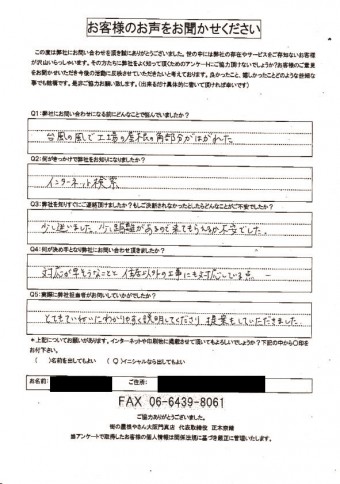 お客様のお声をお聞かせください
この度は弊社にお問い合わせを頂き誠にありがとうございました。世の中には弊社の存在やサービスをご存知ないお客様
が沢山いらっしゃいます。その方たちに弊社をよく知って頂くためのアンケートにご協力頂けないでしょうか?お客様のご意見
をお聞かせいただき今後の活動に反映させていただきたいと考えております。良かったこと、嬉しかったことどのような些細な
事でも結構です。是非ご協力お願い致します。(出来るだけ具体的に書いて頂ければ幸いです)
Q1:弊社にお問い合わせになる前にどんなことで悩んでいましたか?
台風の風で工場の屋根の角部分がはがれた
Q2:何がきっかけで弊社をお知りになりましたか?
インターネット検索
Q3:弊社を知りすぐにご連絡頂けましたか?もしご決断されなかったとしたらどんなことがご不安でしたか?
少し迷いました。少し距離があるので来てもらえるか不安でした。
Q4:何が決め手となり弊社にお問い合わせ頂きましたか?
対応が早そうなことと 住居以外の工事にも対応している点
Q5:実際に弊社担当者がお伺いしていかがでしたか?
とてもていねいにわかりやすく説明してくださり 提案もしていただきました
*上記についてお願いがあります。インターネットや印刷物に掲載させて頂いてもよろしいでしょうか?下記の中から○印を
お付け下さい。
( )名前を出してもよい (○)イニシャルなら出してもよい
お名前: ご住所:
FAX 06-6439-8061
ご協力ありがとうございました。
街の屋根やさん大阪門真店 代表取締役 正木宗綾
当アンケートで取得したお客様の個人情報は関係法規に基づき厳正に管理いたします。